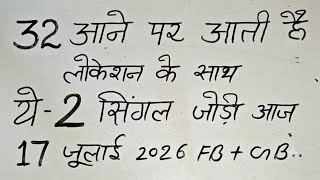 32 आने पर आती है
लोकेशन के साथ
ये-2 सिंगल जोड़ी आज
17 जूलाई 2026 FB + GB..